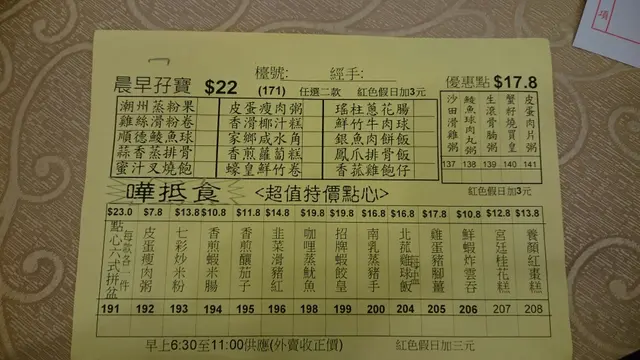 檯號: 經手:
晨早孖寶 $22 (171) 任選二款 紅色假日加3元
優惠點 $17.8
潮州蒸粉果 皮蛋瘦肉粥 瑤柱蔥花腸
雞絲滑粉卷 香滑椰汁糕 鮮竹牛肉球
順德鯪魚球 家鄉咸水角 銀魚肉餅飯
蒜香蒸排骨 香煎蘿蔔糕 鳳爪排骨飯
蜜汁叉燒飽 蠔皇鮮竹卷 香菇雞飽仔
沙田滑雞粥 137
鯪魚球肉丸粥 138
生滾骨腩粥 139
蟹籽燒賣皇 140
皮蛋肉片粥 141
紅色假日加3元
嘩抵食 <超值特價點心>
$23.0 點心六式拼盆 每款各一件 191
$7.8 皮蛋瘦肉粥 192
$13.8 七彩炒米粉 193
$10.8 香煎蝦米腸 194
$11.8 香煎釀茄子 195
$14.8 韭菜滑豬紅 196
$19.8 咖哩蒸魷魚 198
$19.8 招牌蝦餃皇 199
$16.8 南乳蒸豬手 200
$16.8 北菇雞球飯 204
$17.8 雞蛋豬腳薑 205
$10.8 鮮蝦炸雲吞 206
$12.8 宮廷桂花糕 207
$13.8 養顏紅棗糕 208
早上6:30至11:00供應(外賣收正價) 紅色假日加三元
項